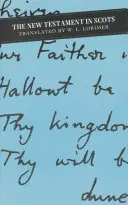 THE NEW TESTAMENT IN SCOTS
TRANSLATED BY W. L. LORIMER
Faither
Hallowt be
Thy kingdom
Thy will b
dune